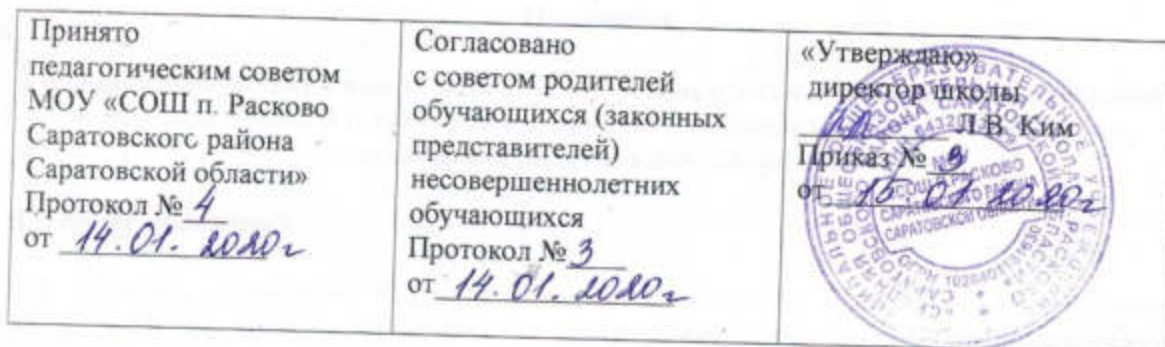 Принято
педагогическим советом
МОУ «СОШ п. Расково
Саратовского района
Саратовской области»
Протокол № 4
от 14.01.2020г
Согласовано
с советом родителей
обучающихся (законных
представителей)
несовершеннолетних
обучающихся
Протокол № 3
от 14.01.2020г
«Утверждаю»
директор школы
Л.В. Ким
Приказ № 9
от 15.01.2020г
РАСКОВО
САРАТОВСКОГО РАЙОНА
САРАТОВСКОЙ ОБЛАСТИ